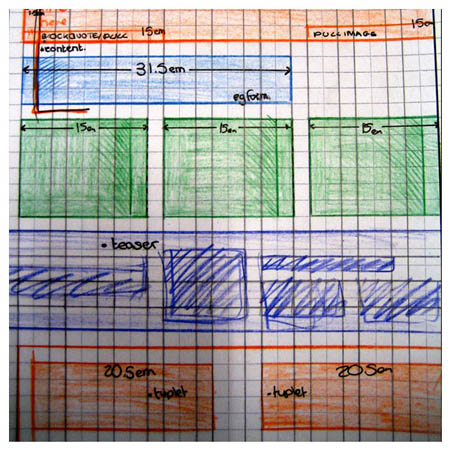 here
BLOCKQUOTE/PULL 15em PULLIMAGE 15em
• content.
31.5em
eg form.
15em 15em 15em
• teaser
20.5em 20.5em
• tuplet • tuplet